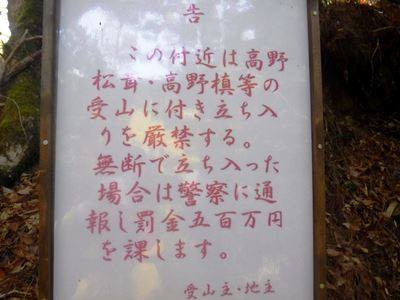 告
この付近は高野
松茸・高野槙等の
受山に付き立ち入
りを厳禁する。
無断で立ち入った
場合は警察に通
報し罰金五百万円
を課します。
受山主・地主